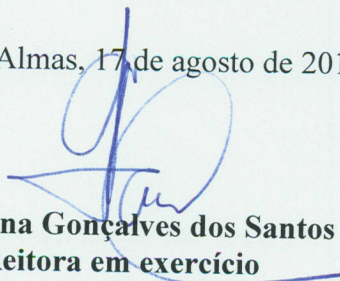 Almas, 17 de agosto de 201
na Gonçalves dos Santos
eitora em exercício